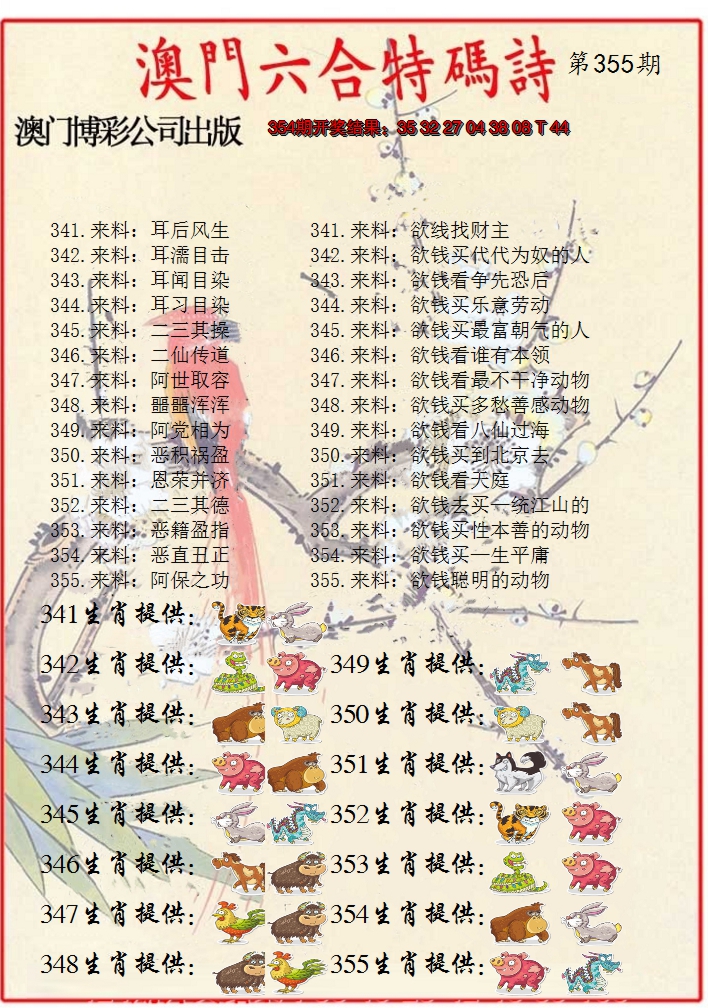 澳門六合特碼詩 第355期
澳门博彩公司出版 354期开奖结果：35 32 27 04 38 08 T 44
341.来料：耳后风生 341.来料：欲线找财主
342.来料：耳濡目击 342.来料：欲钱买代代为奴的人
343.来料：耳闻目染 343.来料：欲钱看争先恐后
344.来料：耳习目染 344.来料：欲钱买乐意劳动
345.来料：二三其操 345.来料：欲钱买最富朝气的人
346.来料：二仙传道 346.来料：欲钱看谁有本领
347.来料：阿世取容 347.来料：欲钱看最不干净动物
348.来料：噩噩浑浑 348.来料：欲钱买多愁善感动物
349.来料：阿党相为 349.来料：欲钱看八仙过海
350.来料：恶积祸盈 350.来料：欲钱买到北京去
351.来料：恩荣并济 351.来料：欲钱看天庭
352.来料：二三其德 352.来料：欲钱去买一统江山的
353.来料：恶籍盈指 353.来料：欲钱买性本善的动物
354.来料：恶直丑正 354.来料：欲钱买一生平庸
355.来料：阿保之功 355.来料：欲钱聪明的动物
341生肖提供：
342生肖提供： 349生肖提供：
343生肖提供： 350生肖提供：
344生肖提供： 351生肖提供：
345生肖提供： 352生肖提供：
346生肖提供： 353生肖提供：
347生肖提供： 354生肖提供：
348生肖提供： 355生肖提供：